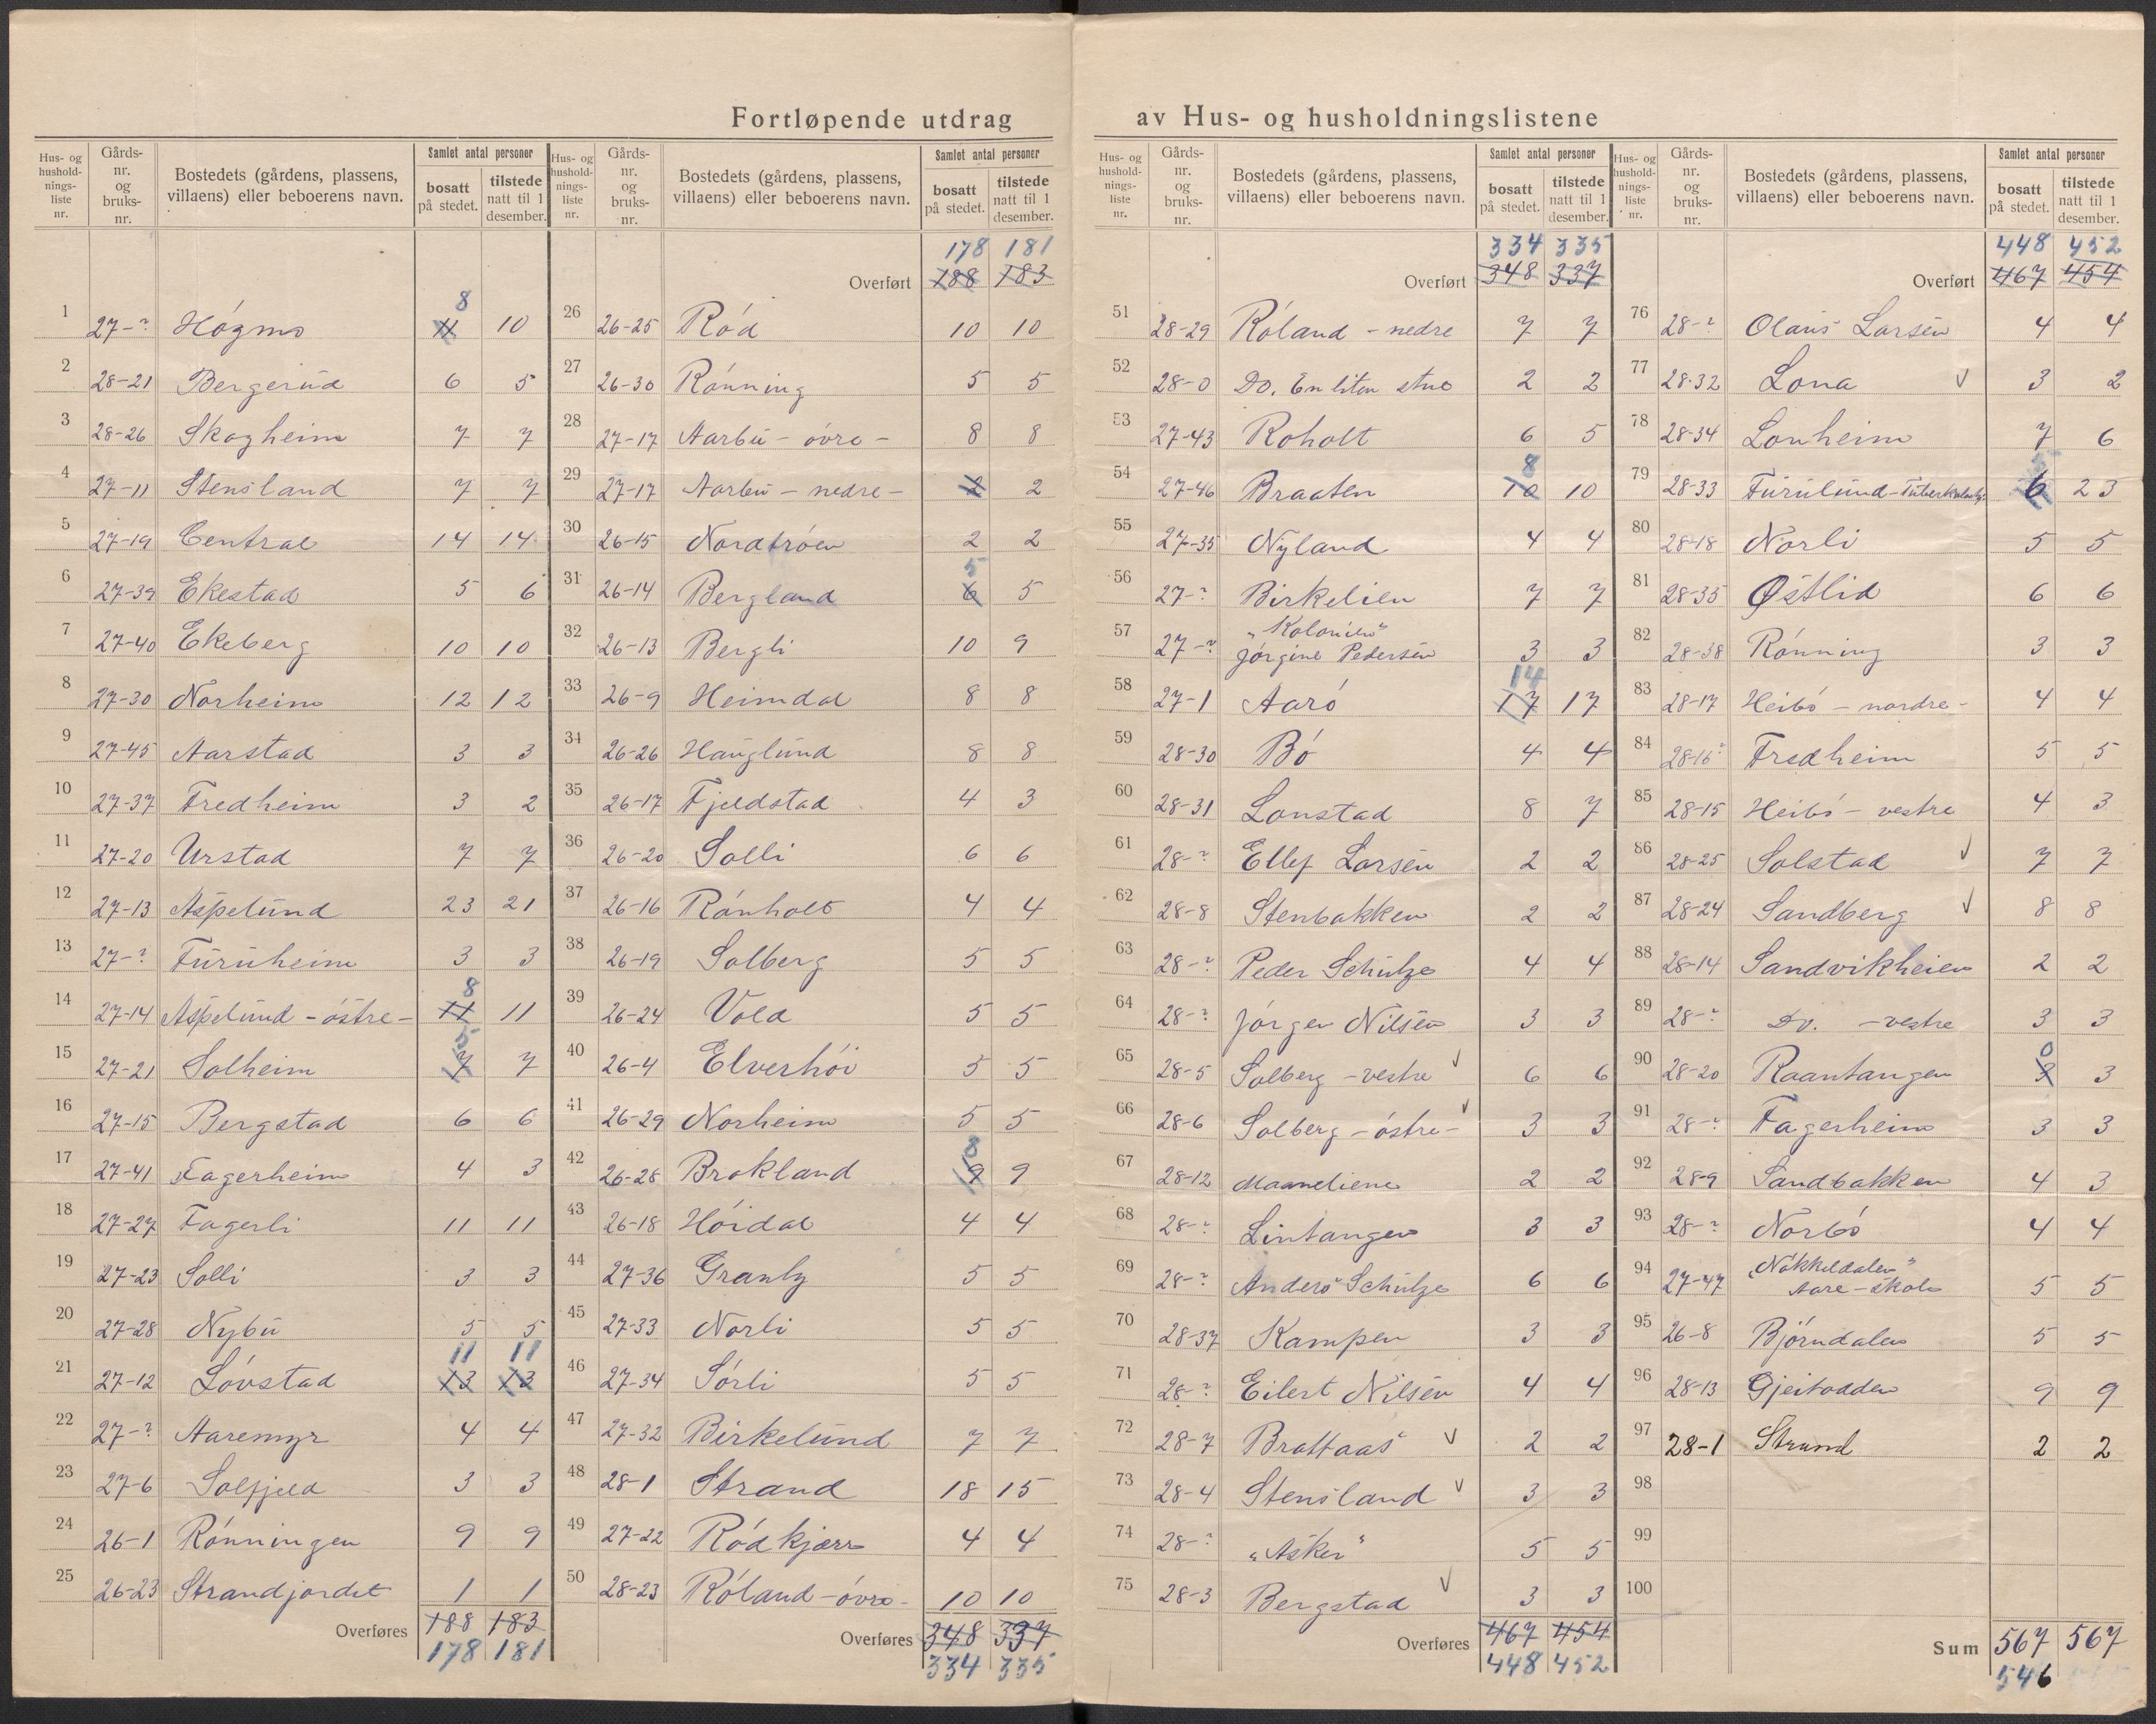 Fortløpende utdrag av Hus- og husholdningslistene
Hus- og hushold-nings-liste nr. Gårds-nr. og bruks-nr. Bostedets (gårdens, plassens, villaens) eller beboerens navn. Samlet antal personer bosatt på stedet. tilstede natt til 1 desember.
1 27-? Høgmo 11 8 10
2 28-21 Bergerud 6 5
3 28-26 Skogheim 7 7
4 27-11 Stensland 7 7
5 27-19 Central 14 14
6 27-39 Ekestad 5 6
7 27-40 Ekeberg 10 10
8 27-30 Norheim 12 12
9 27-45 Aarstad 3 3
10 27-37 Fredheim 3 2
11 27-20 Urstad 7 7
12 27-13 Aspelund 23 21
13 27-? Furuheim 3 3
14 27-14 Aspelund - østre - 11 8 11
15 27-21 Solheim 7 5 7
16 27-15 Bergstad 6 6
17 27-41 Fagerheim 4 3
18 27-27 Fagerli 11 11
19 27-23 Solli 3 3
20 27-28 Nybu 5 5
21 27-12 Løvstad 13 11 13 11
22 27-? Aaremyr 4 4
23 27-6 Solfjeld 3 3
24 26-1 Rønningen 9 9
25 26-23 Strandjordet 1 1
Overføres 188 183
178 181
Hus- og hushold-nings-liste nr. Gårds-nr. og bruks-nr. Bostedets (gårdens, plassens, villaens) eller beboerens navn. Samlet antal personer bosatt på stedet. tilstede natt til 1 desember.
178 181
Overført 188 183
26 26-25 Rød 10 10
27 26-30 Rønning 5 5
28 27-17 Aarbu - øvre - 8 8
29 27-17 Aarbu - nedre - 2 2
30 26-15 Nordtrøen 2 2
31 26-14 Bergland 6 5 5
32 26-13 Bergli 10 9
33 26-9 Heimdal 8 8
34 26-26 Hauglund 8 8
35 26-17 Fjeldstad 4 3
36 26-20 Solli 6 6
37 26-16 Rønholt 4 4
38 26-19 Solberg 5 5
39 26-24 Vold 5 5
40 26-4 Elverhöi 5 5
41 26-29 Norheim 5 5
42 26-28 Brokland 9 8 9
43 26-18 Høidal 4 4
44 27-36 Granly 5 5
45 27-33 Norli 5 5
46 27-34 Sørli 5 5
47 27-32 Birkelund 7 7
48 28-1 Strand 18 15
49 27-22 Rødkjærr 4 4
50 28-23 Røland - øvre - 10 10
Overføres 348 337
334 335
Hus- og hushold-nings-liste nr. Gårds-nr. og bruks-nr. Bostedets (gårdens, plassens, villaens) eller beboerens navn. Samlet antal personer bosatt på stedet. tilstede natt til 1 desember.
334 335
Overført 348 337
51 28-29 Røland - nedre 7 7
52 28-0 Do. En liten stue 2 2
53 27-43 Roholt 6 5
54 27-46 Braaten 10 8 10
55 27-35 Nyland 4 4
56 27-? Birkelien 7 7
57 27-? "Kolonien" Jørgine Pedersen 3 3
58 27-1 Aarø 17 14 17
59 28-30 Bø 4 4
60 28-31 Lonstad 8 7
61 28-? Ellef Larsen 2 2
62 28-8 Stenbakken 2 2
63 28-? Peder Schulze 4 4
64 28-? Jørgen Nilsen 3 3
65 28-5 Solberg - vestre √ 6 6
66 28-6 Solberg - østre - √ 3 3
67 28-12 Maaneliene 2 2
68 28-? Lintangen 3 3
69 28-? Anders Schulze 6 6
70 28-37 Kampen 3 3
71 28-? Eilert Nilsen 4 4
72 28-7 Brattaas √ 2 2
73 28-4 Stensland √ 3 3
74 28-? "Asker" 5 5
75 28-3 Bergstad √ 3 3
Overføres 467 454
448 452
Hus- og hushold-nings-liste nr. Gårds-nr. og bruks-nr. Bostedets (gårdens, plassens, villaens) eller beboerens navn. Samlet antal personer bosatt på stedet. tilstede natt til 1 desember.
448 452
Overført 467 454
76 28-? Olaus Larsen 4 4
77 28-32 Lona √ 3 2
78 28-34 Lonheim 7 6
79 28-33 Furulund - 6 23
80 28-18 Norli 5 5
81 28-35 Østlid 6 6
82 28-38 Rønning 3 3
83 28-17 Heibø - nordre - 4 4
84 28-16 Fredheim 5 5
85 28-15 Heibø - vestre 4 3
86 28-25 Solstad √ 7 7
87 28-24 Sandberg √ 8 8
88 28-14 Sandvikheien 2 2
89 28-? Do. - vestre 3 3
90 28-20 Raantangen 3 0 3
91 28-? Fagerheim 3 3
92 28-9 Sandbakken 4 3
93 28-? Norbø 4 4
94 27-47 "Nøkkeldalen" Aare - skole 5 5
95 26-8 Bjørndalen 5 5
96 28-13 Gjeitodden 9 9
97 28-1 Strand 2 2
98
99
100
Sum 567 567
546